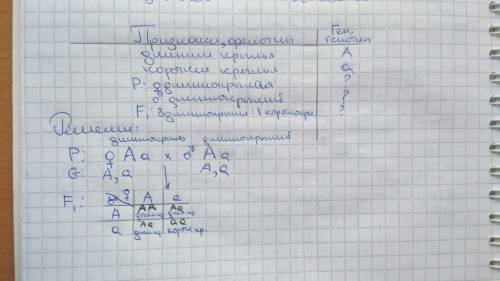 Признаки, фенотипы Ген, генотип
длинные крылья A
короткие крылья a
P: ♀ длиннокрылая ?
♂ длиннокрылый ?
F₁: 3 длиннокрылые : 1 короткокр. ?
Решение:
длиннокрылая длиннокрылый
P: ♀ Aa x ♂ Aa
G: A, a A, a
F₁: ♂ ♀ A a
A AA Aa
a Aa aa
длин. короткокр.